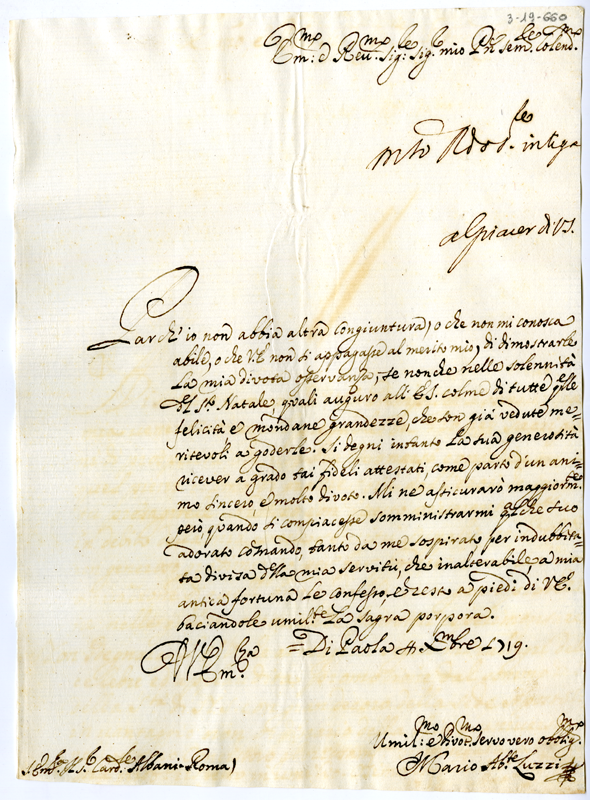 3-19-660
Em:mo e Reu.mo Sig:re Sig.r mio Pñe sem.le Colend.mo
al piacer di V.S.
Parch'io non abbia altra congiuntura, o che non mi conosca
abile, o che V.E. non si appagasse al merito mio, di dimostrarle
La mia divota osservanza, se non che nelle solennità
del S.to Natale, quali auguro all'E.S. colme di tutte q.lle
felicità e mondane grandezze, che son già vedute me=
ritevoli a goderle. Si degni intanto La sua generosità
ricever a grado tai fideli attestati, come parto d'un ani=
mo sincero e molto divoto. Mi ne assicurarò maggiorm.te
però quando si compiacesse somministrarmi qlche suo
adorato comando, tanto da me sospirato per indubbita=
ta divisa della mia servitù, che inalterabile a mia
antica fortuna Le confesso, e resto a piedi di V.E.
baciandole umil.te La sagra porpora.
Di Paola 4 Xmbre 1719.
Umil:mo e divot.mo servo vero obblig.mo
Mario Ab.te Luzzi
Card.le Albani = Roma)